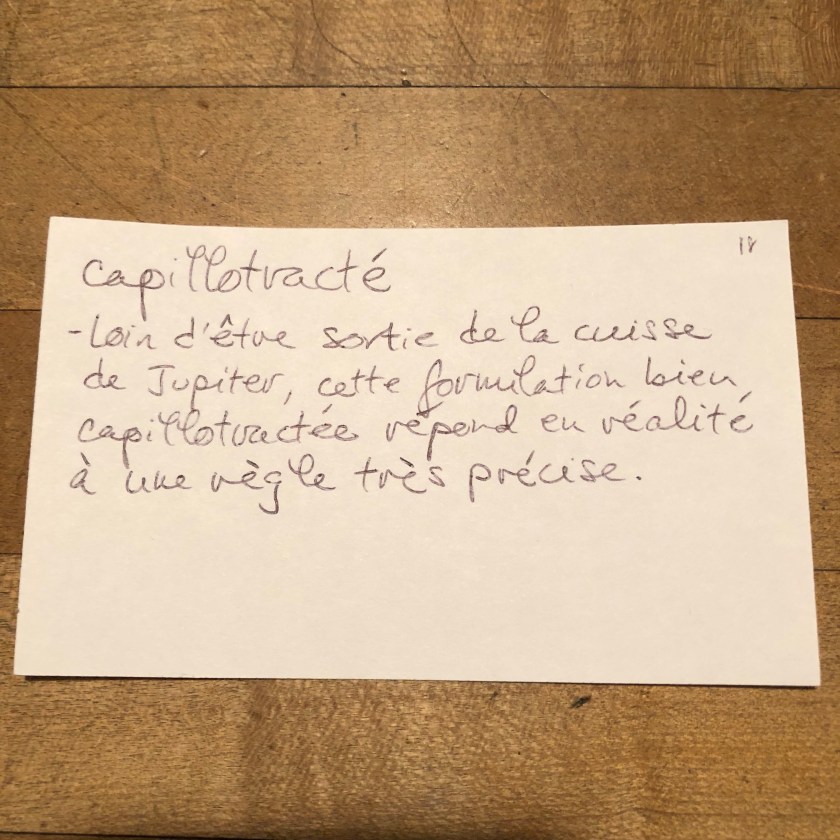 18
capillotracté
- Loin d'être sortie de la cuisse
de Jupiter, cette formulation bien
capillotractée répond en réalité
à une règle très précise.